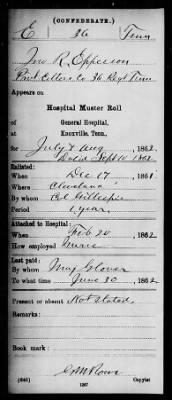 (CONFEDERATE.)
E 36 Tenn
Jno R. Epperson
Privt. Co 36 Regt Tenn
Appears on
Hospital Muster Roll
of
General Hospital,
Knoxville, Tenn.,
for July & Aug, 1862.
Dated Sept 10 1862
Enlisted:
When Dec 17, 1861
Where Cleveland
By whom Col Gillespie
Period 1 year
Attached to Hospital:
When Feb 20, 1862
How employed Nurse
Last paid:
By whom Maj Glover
To what time June 30, 1862
Present or absent Not stated
Remarks:
Book mark:
(645) 1267 Copyist